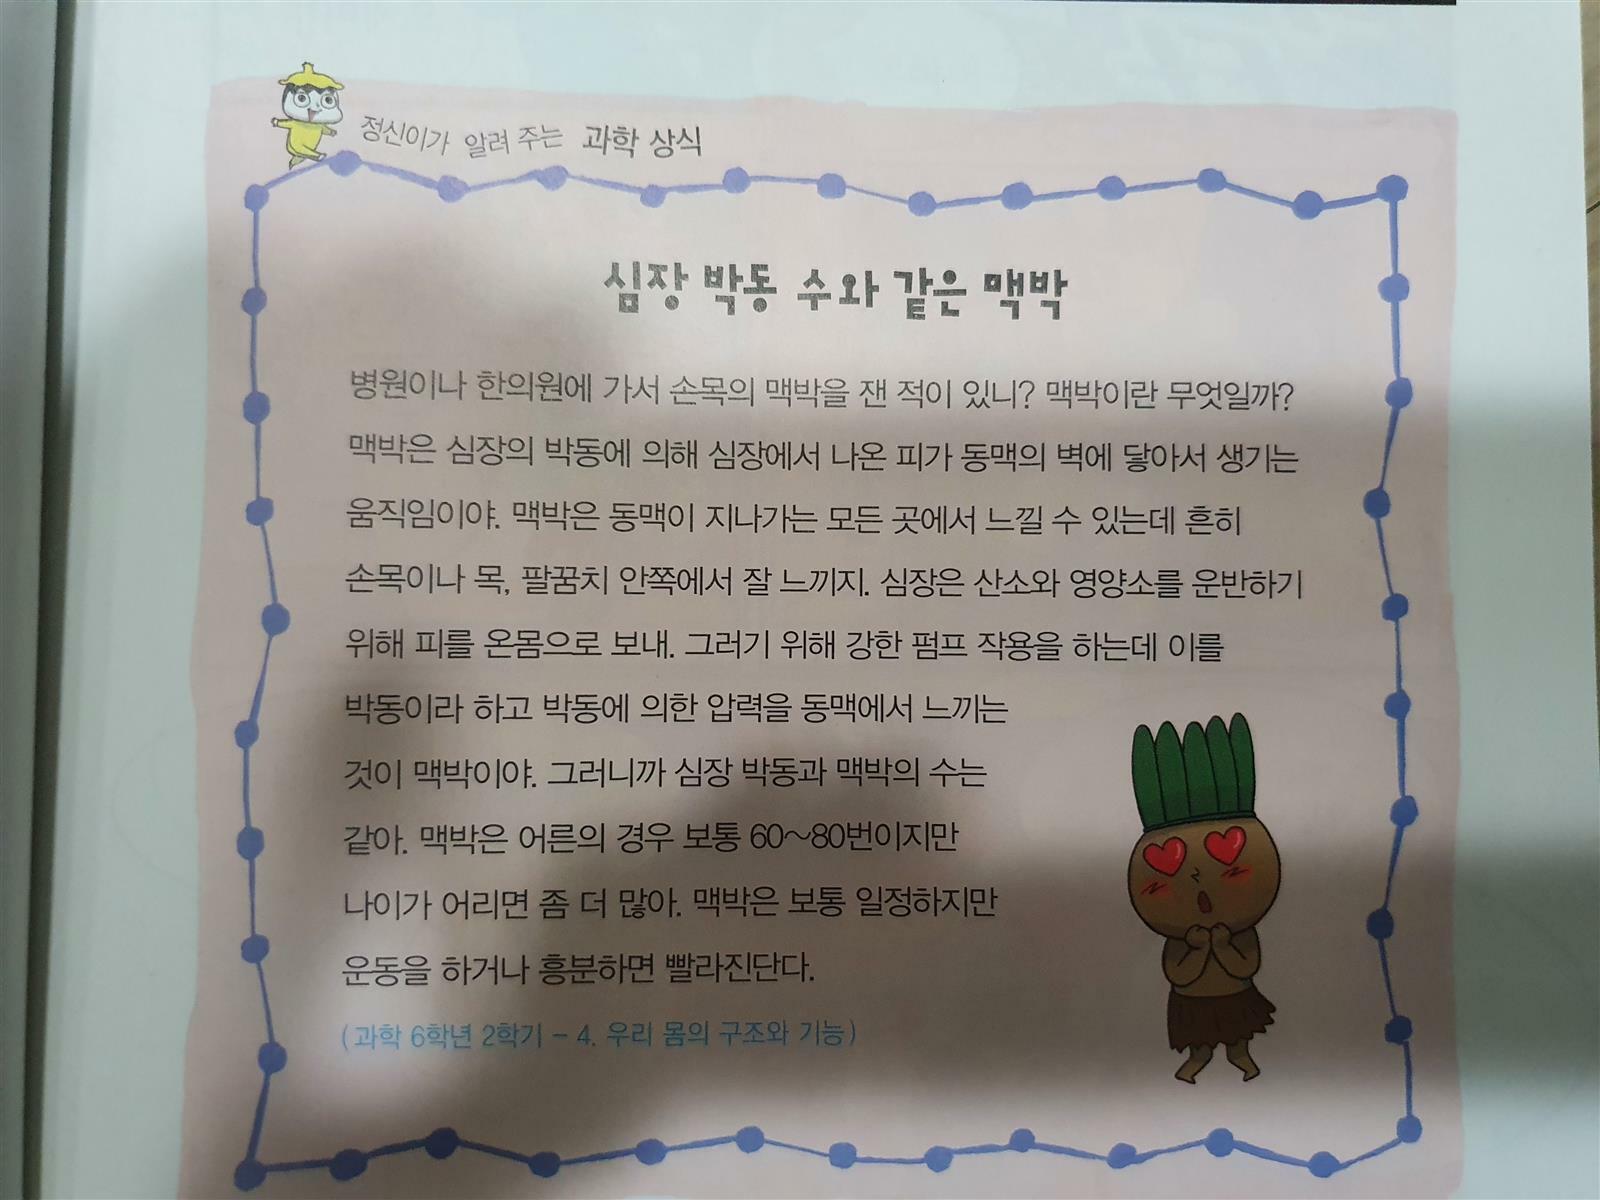 정신이가 알려 주는 과학 상식
심장 박동 수와 같은 맥박
병원이나 한의원에 가서 손목의 맥박을 잰 적이 있니? 맥박이란 무엇일까?
맥박은 심장의 박동에 의해 심장에서 나온 피가 동맥의 벽에 닿아서 생기는
움직임이야. 맥박은 동맥이 지나가는 모든 곳에서 느낄 수 있는데 흔히
손목이나 목, 팔꿈치 안쪽에서 잘 느끼지. 심장은 산소와 영양소를 운반하기
위해 피를 온몸으로 보내. 그러기 위해 강한 펌프 작용을 하는데 이를
박동이라 하고 박동에 의한 압력을 동맥에서 느끼는
것이 맥박이야. 그러니까 심장 박동과 맥박의 수는
같아. 맥박은 어른의 경우 보통 60~80번이지만
나이가 어리면 좀 더 많아. 맥박은 보통 일정하지만
운동을 하거나 흥분하면 빨라진단다.
(과학 6학년 2학기 - 4. 우리 몸의 구조와 기능)